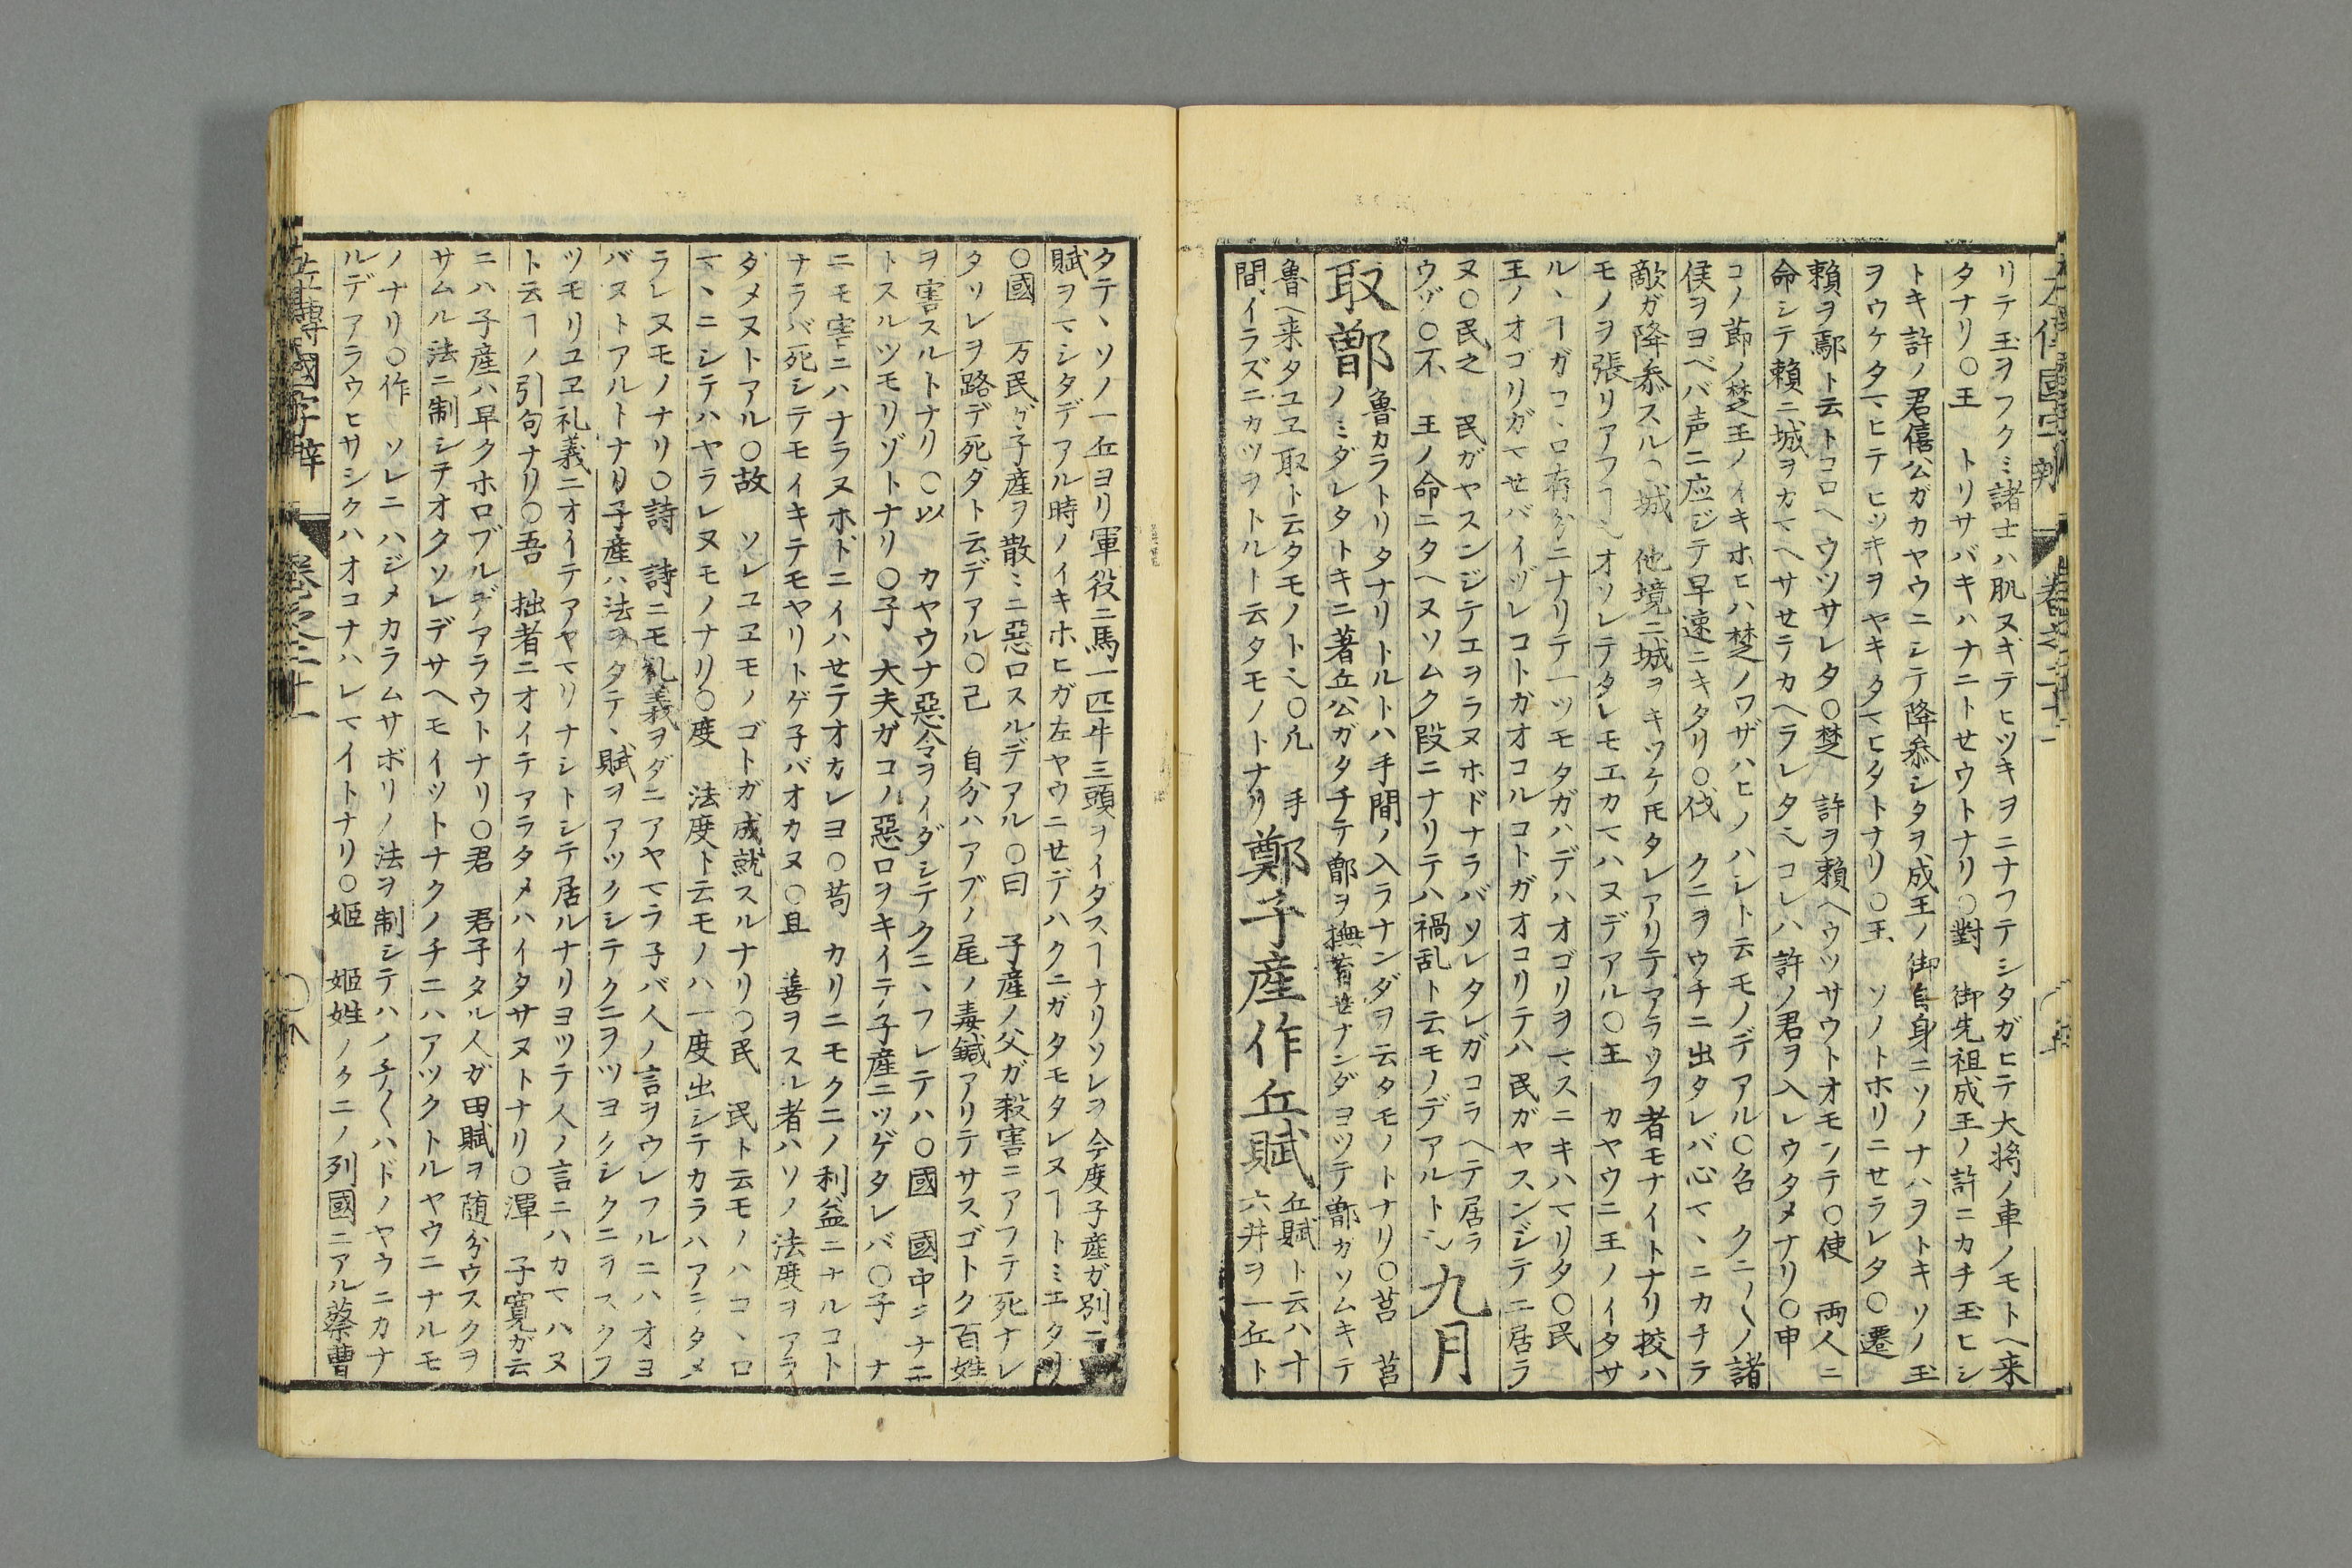 リテ玉ヲフクミ諸士ハ肌ヌギテヒツキヲニナフテシタガヒテ大将ノ車ノモトヘ来
タナリ〇王　トリサバキハナニトセウトナリ〇對　御先祖成王ノ許ニカチ玉ヒシ
トキ許ノ君僖公ガカヤウニシテ降参シタヲ成王ノ御自身ニソノナハヲトキソノ玉
ヲウケタマヒテヒツキヲヤキタマヒタトナリ〇王　ソノトホリニセラレタ〇遷
頼ヲ鄢ト云トコロヘウツサレタ〇楚　許ヲ頼ヘウツサウトオモンテ〇使　両人ニ
命シテ頼ニ城ヲカマヘサセテカヘラレタ コレハ許ノ君ヲ入レウタメナリ〇申
コノ節ノ楚王ノイキホヒハ楚ノワザハヒノハシト云モノデアル〇召　クニ〱ノ諸
侯ヲヨベバ声ニ応ジテ早速ニキタリ〇伐　クニヲウチニ出タレバ心マヽニカチテ
敵ガ降参スル〇城　他境ニ城ヲキヅケ𪜈タレアリテアラソフ者モナイトナリ挍ハ
モノヲ張リアフヿ オソレテタレモエカマハヌデアル〇王　カヤウニ王ノイタサ
ルヽヿガコヽロ存分ニナリテ一ツモタガハデハオゴリヲマスニキハマリタ〇民
王ノオゴリガマセバイヅレコトガオコルコトガオコリテハ民ガヤスンジテ居ラ
ヌ〇民之　民ガヤスンジテエヲラヌホドナラバソレタレガコラヘテ居ラ
ウゾ〇不　王ノ命ニタヘヌソムク段ニナリテハ禍乱ト云モノデアルト 九月
取鄫 魯カラトリタナリトルトハ手間ノ入ラナンダヲ云タモノトナリ〇莒　莒
ノミダレタトキニ著丘公ガタチテ鄫ヲ撫育セナンダヨツテ鄫ガソムキテ
魯ヘ来タユヱ取ト云タモノト 〇凡　手
間イラズニカツヲトルト云タモノトナリ 鄭子産作丘賦 丘賦ト云ハ十
六井ヲ一丘ト
タテヽソノ一丘ヨリ軍役ニ馬一匹牛三頭ヲイダスヿナリソレヲ今度子産ガ別ニ
賦ヲマシタデアル時ノイキホヒガ左ヤウニセデハクニガタモタレヌヿトミエタリ
〇國　万民ガ子産ヲ散ミニ惡口スルデアル〇曰　子産ノ父ガ殺害ニアフテ死ナレ
タリレヲ路デ死ダト云デアル〇己　自分ハアブノ尾ノ毒鍼アリテサスゴトク百姓
ヲ害スルトナリ〇以　カヤウナ惡令ヲイダシテクニヽフレテハ〇國　國中ジナニ
トスルツモリゾトナリ〇子　大夫ガコノ惡口ヲキイテ子産ニツゲタレバ〇子　ナ
ニモ害ニハナラヌホドニイハセテオカレヨ〇苟　カリニモクニノ利益ニナルコト
ナラバ死シテモイキテモヤリトゲ子バオカヌ〇且　善ヲスル者ハソノ法度ヲアラ
タメヌトアル〇故　ソレユヱモノゴトガ成就スルナリ〇民　民ト云モノハコヽロ
マヽニシテハヤラレヌモノナリ〇度　法度ト云モノハ一度出シテカラハアラタメ
ラレヌモノナリ〇詩　詩ニモ礼義ヲダニアヤマラ子バ人ノ言ヲウレフルニハオヨ
バヌトアルトナリ子産ハ法ヲタテヽ賦ヲアツクシテクニヲツヨクシクニヲスクフ
ツモリユヱ礼義ニオイテアヤマリナシトシテ居ルナリヨツテ人ノ言ニハカマハヌ
ト云ヿノ引句ナリ〇吾　拙者ニオイテアラタメハイタサヌトナリ〇渾　子寛ガ云
ニハ子産ハ早クホロブルデアラウトナリ〇君　君子タル人ガ田賦ヲ随分ウスクヲ
サムル法ニ制シテオクソレデサヘモイツトナクノチニハアツクトルヤウニナルモ
ノナリ〇作　ソレニハジメカラムサボリノ法ヲ制シテハノチ〱ハドノヤウニカナ
ルデアラウヒサシクハオコナハレマイトナリ〇姫　姫姓ノクニノ列國ニアル蔡曹
左傳國字辯　卷之二十一　〇八